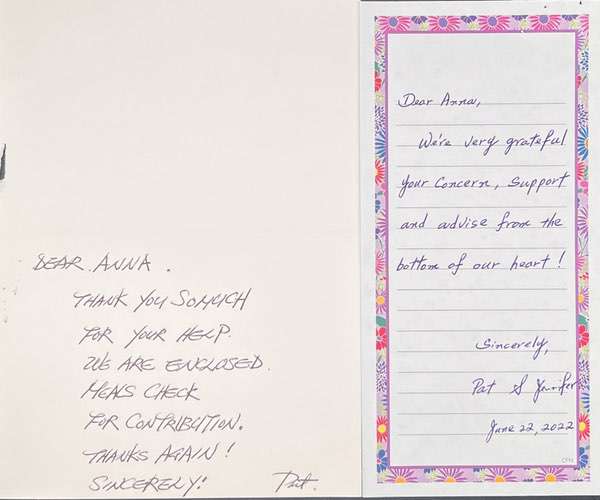 DEAR ANNA.
THANK YOU SO MUCH
FOR YOUR HELP.
WE ARE ENCLOSED.
MEALS CHECK
FOR CONTRIBUTION.
THANKS AGAIN!
SINCERELY! Pat.
Dear Anna,
We're very grateful
your Concern, Support
and advise from the
bottom of our heart!
Sincerely,
Pat & Jennifer
June 22, 2022